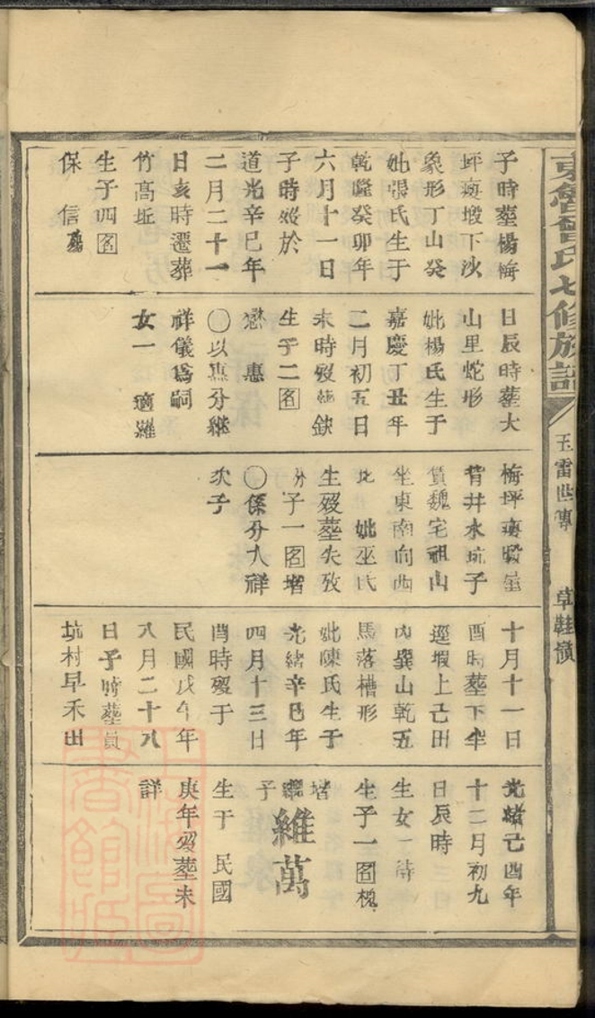 東魯曾氏七修族譜
玉雷世傳
草鞋嶺
子時葬楊梅
坪瘐塅下沙
象形丁山癸
妣張氏生于
乾隆癸卯年
六月十一日
子時歿於
道光辛巳年
二月二十一
日亥時遷葬
竹高坵
生子四名
保 信
日辰時葬大
山里蛇形
妣楊氏生于
嘉慶丁丑年
二月初五日
未時歿缺
生子二名
懋 惠
〇以惠分繼
祥儀為嗣
女一 適羅
梅坪
背井水坑子
賃魏宅祖山
坐東南向西
北 妣巫氏
生歿葬失攷
分子一名增
〇係分大祥
次子
十月十一日
酉時葬下
逕塅上己田
內巽山乾五
馬落槽形
妣陳氏生于
光緒辛巳年
四月十三日
酉時歿于
民國戊午年
八月二十八
日子時葬員
坑村早禾田
光緒己酉年
十二月初九
日辰時
生女一
生子一名槐
增繼子
維萬
生于 民國
庚年歿葬未
詳